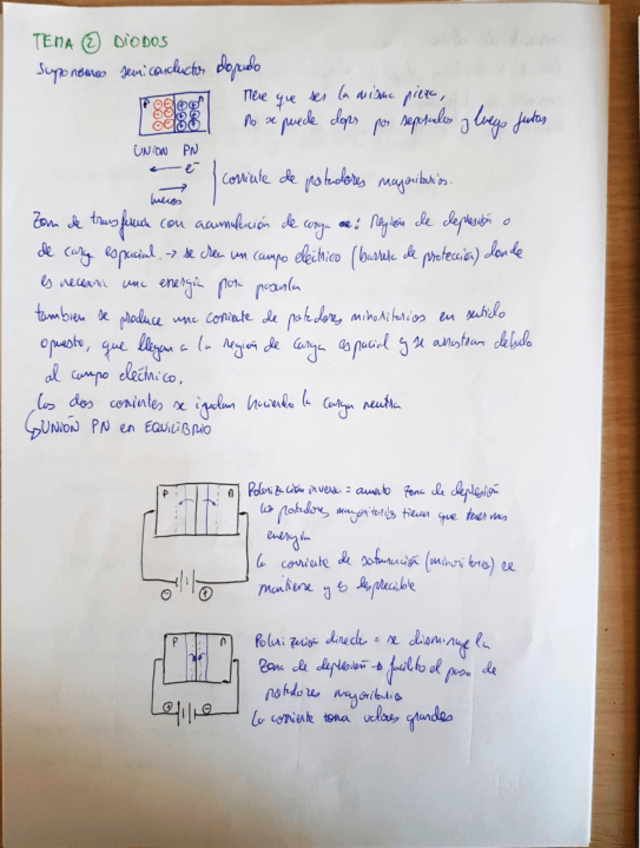 TEMA 2 DIODOS
Suponemos semiconductor dopado
P n
Tiene que ser la misma pieza,
no se puede dopar por separado y luego juntar
UNION PN
← e-
→
huecos
corriente de portadores mayoritarios.
Zona de transferencia con acumulación de carga : Región de depresión o
de carga espacial. → se crea un campo eléctrico (barrera de protección) donde
es necesaria una energía para pasarla
tambien se produce una corriente de portadores minoritarios en sentido
opuesto, que llegan a la región de carga espacial y se arrastran debido
al campo eléctrico.
Las dos corrientes se igualan haciendo la carga neutra
↳ UNIÓN PN en EQUILIBRIO
P n
Polarización inversa = aumento zona de depresión
los portadores mayoritarios tienen que tener mas
energía
la corriente de saturación (minoritarios) se
mantiene y es despreciable
- +
P n
Polarización directa = se disminuye la
zona de depresión → facilita el paso de
portadores mayoritarios
La corriente toma valores grandes
+ -